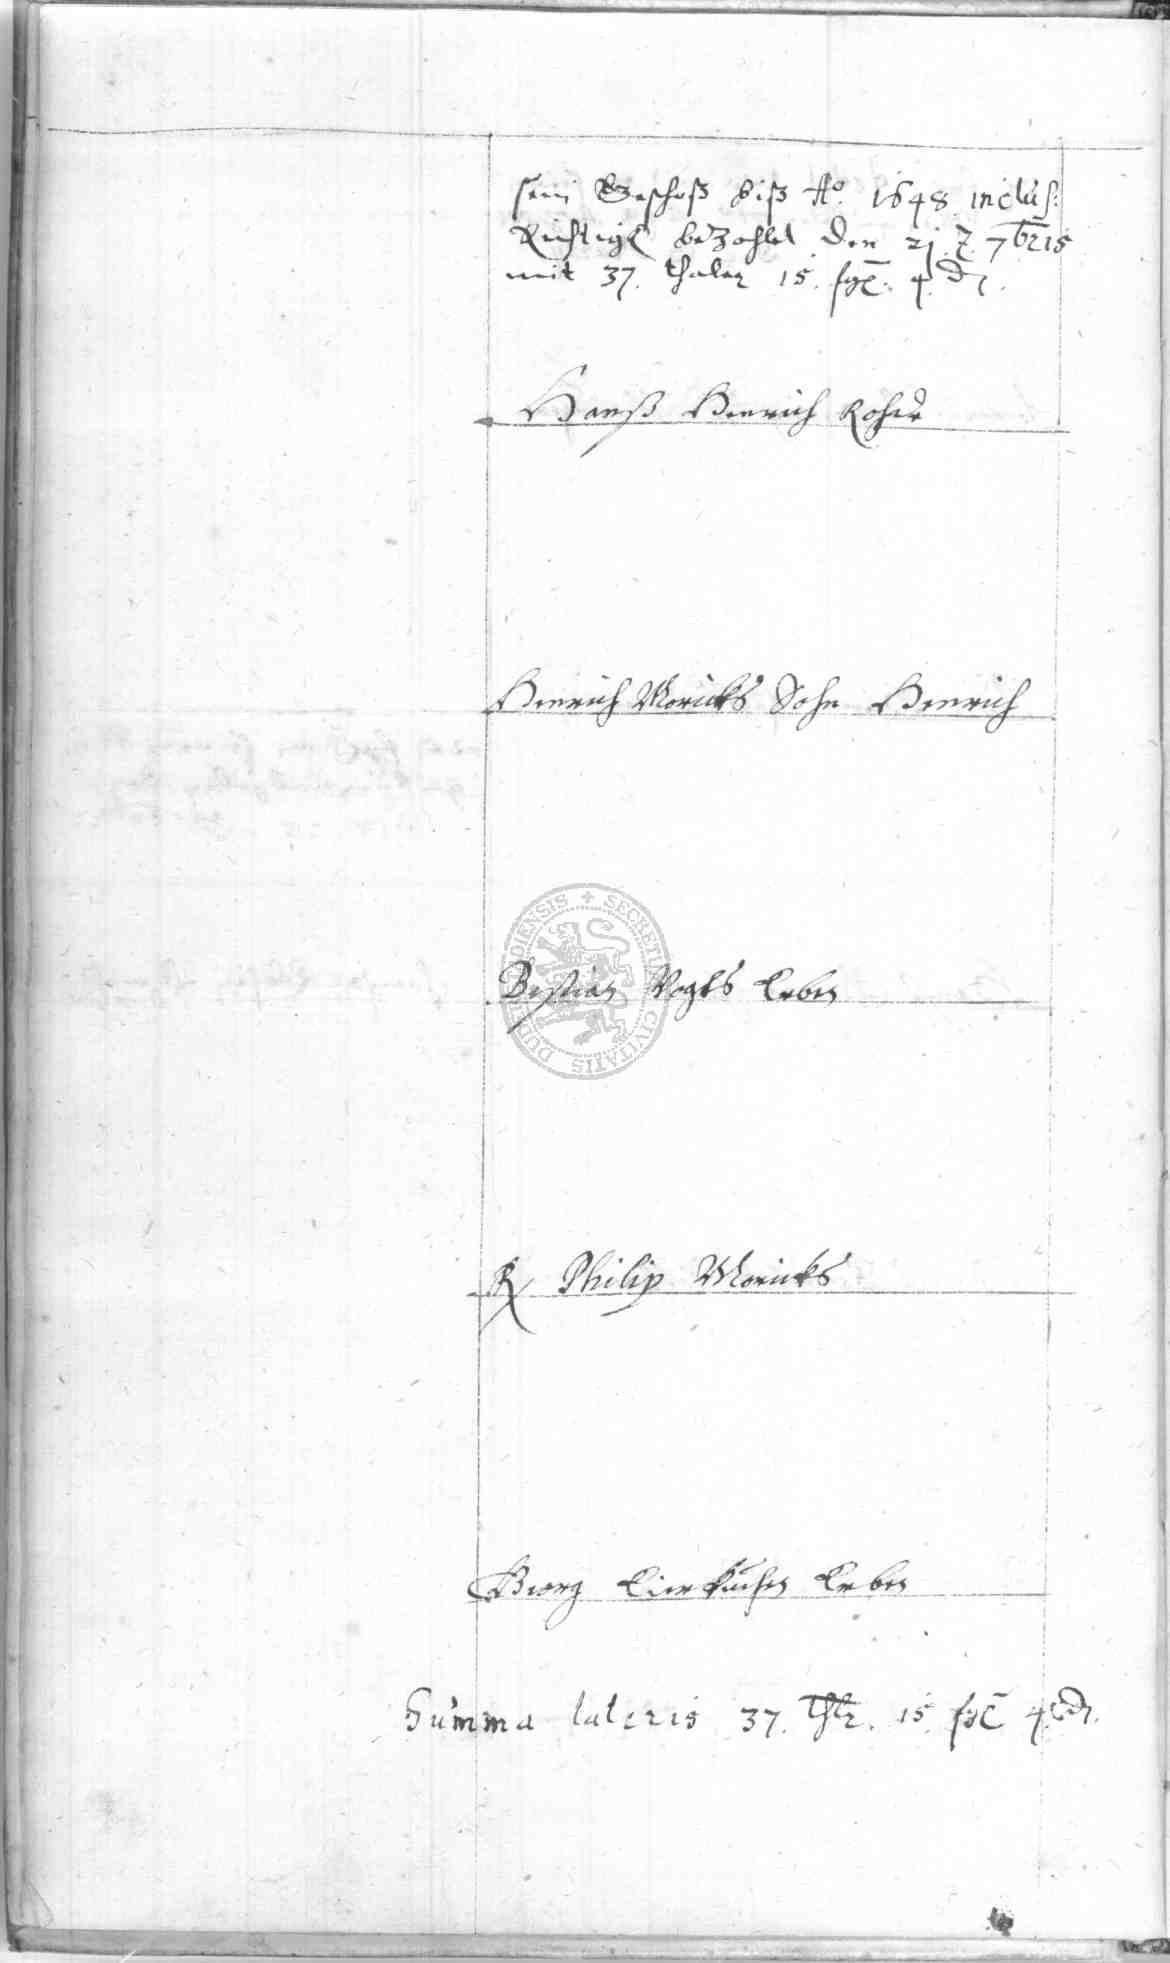 sein Geschoß biß Ao. 1648. inclus:
Richtigk bezahlet den 21. 7bris
mit 37. thaler 15. sgl: 4. d.
Hanß Henrich
Henrich Moricks Sohn Henrich
Bastian Vogts Erben
Philip Moricks
Georg Erben
Summa lateris 37. Thlr. 15. sgl 4. d.
SECRETUM CIVITATIS DUDERSTADIENSIS